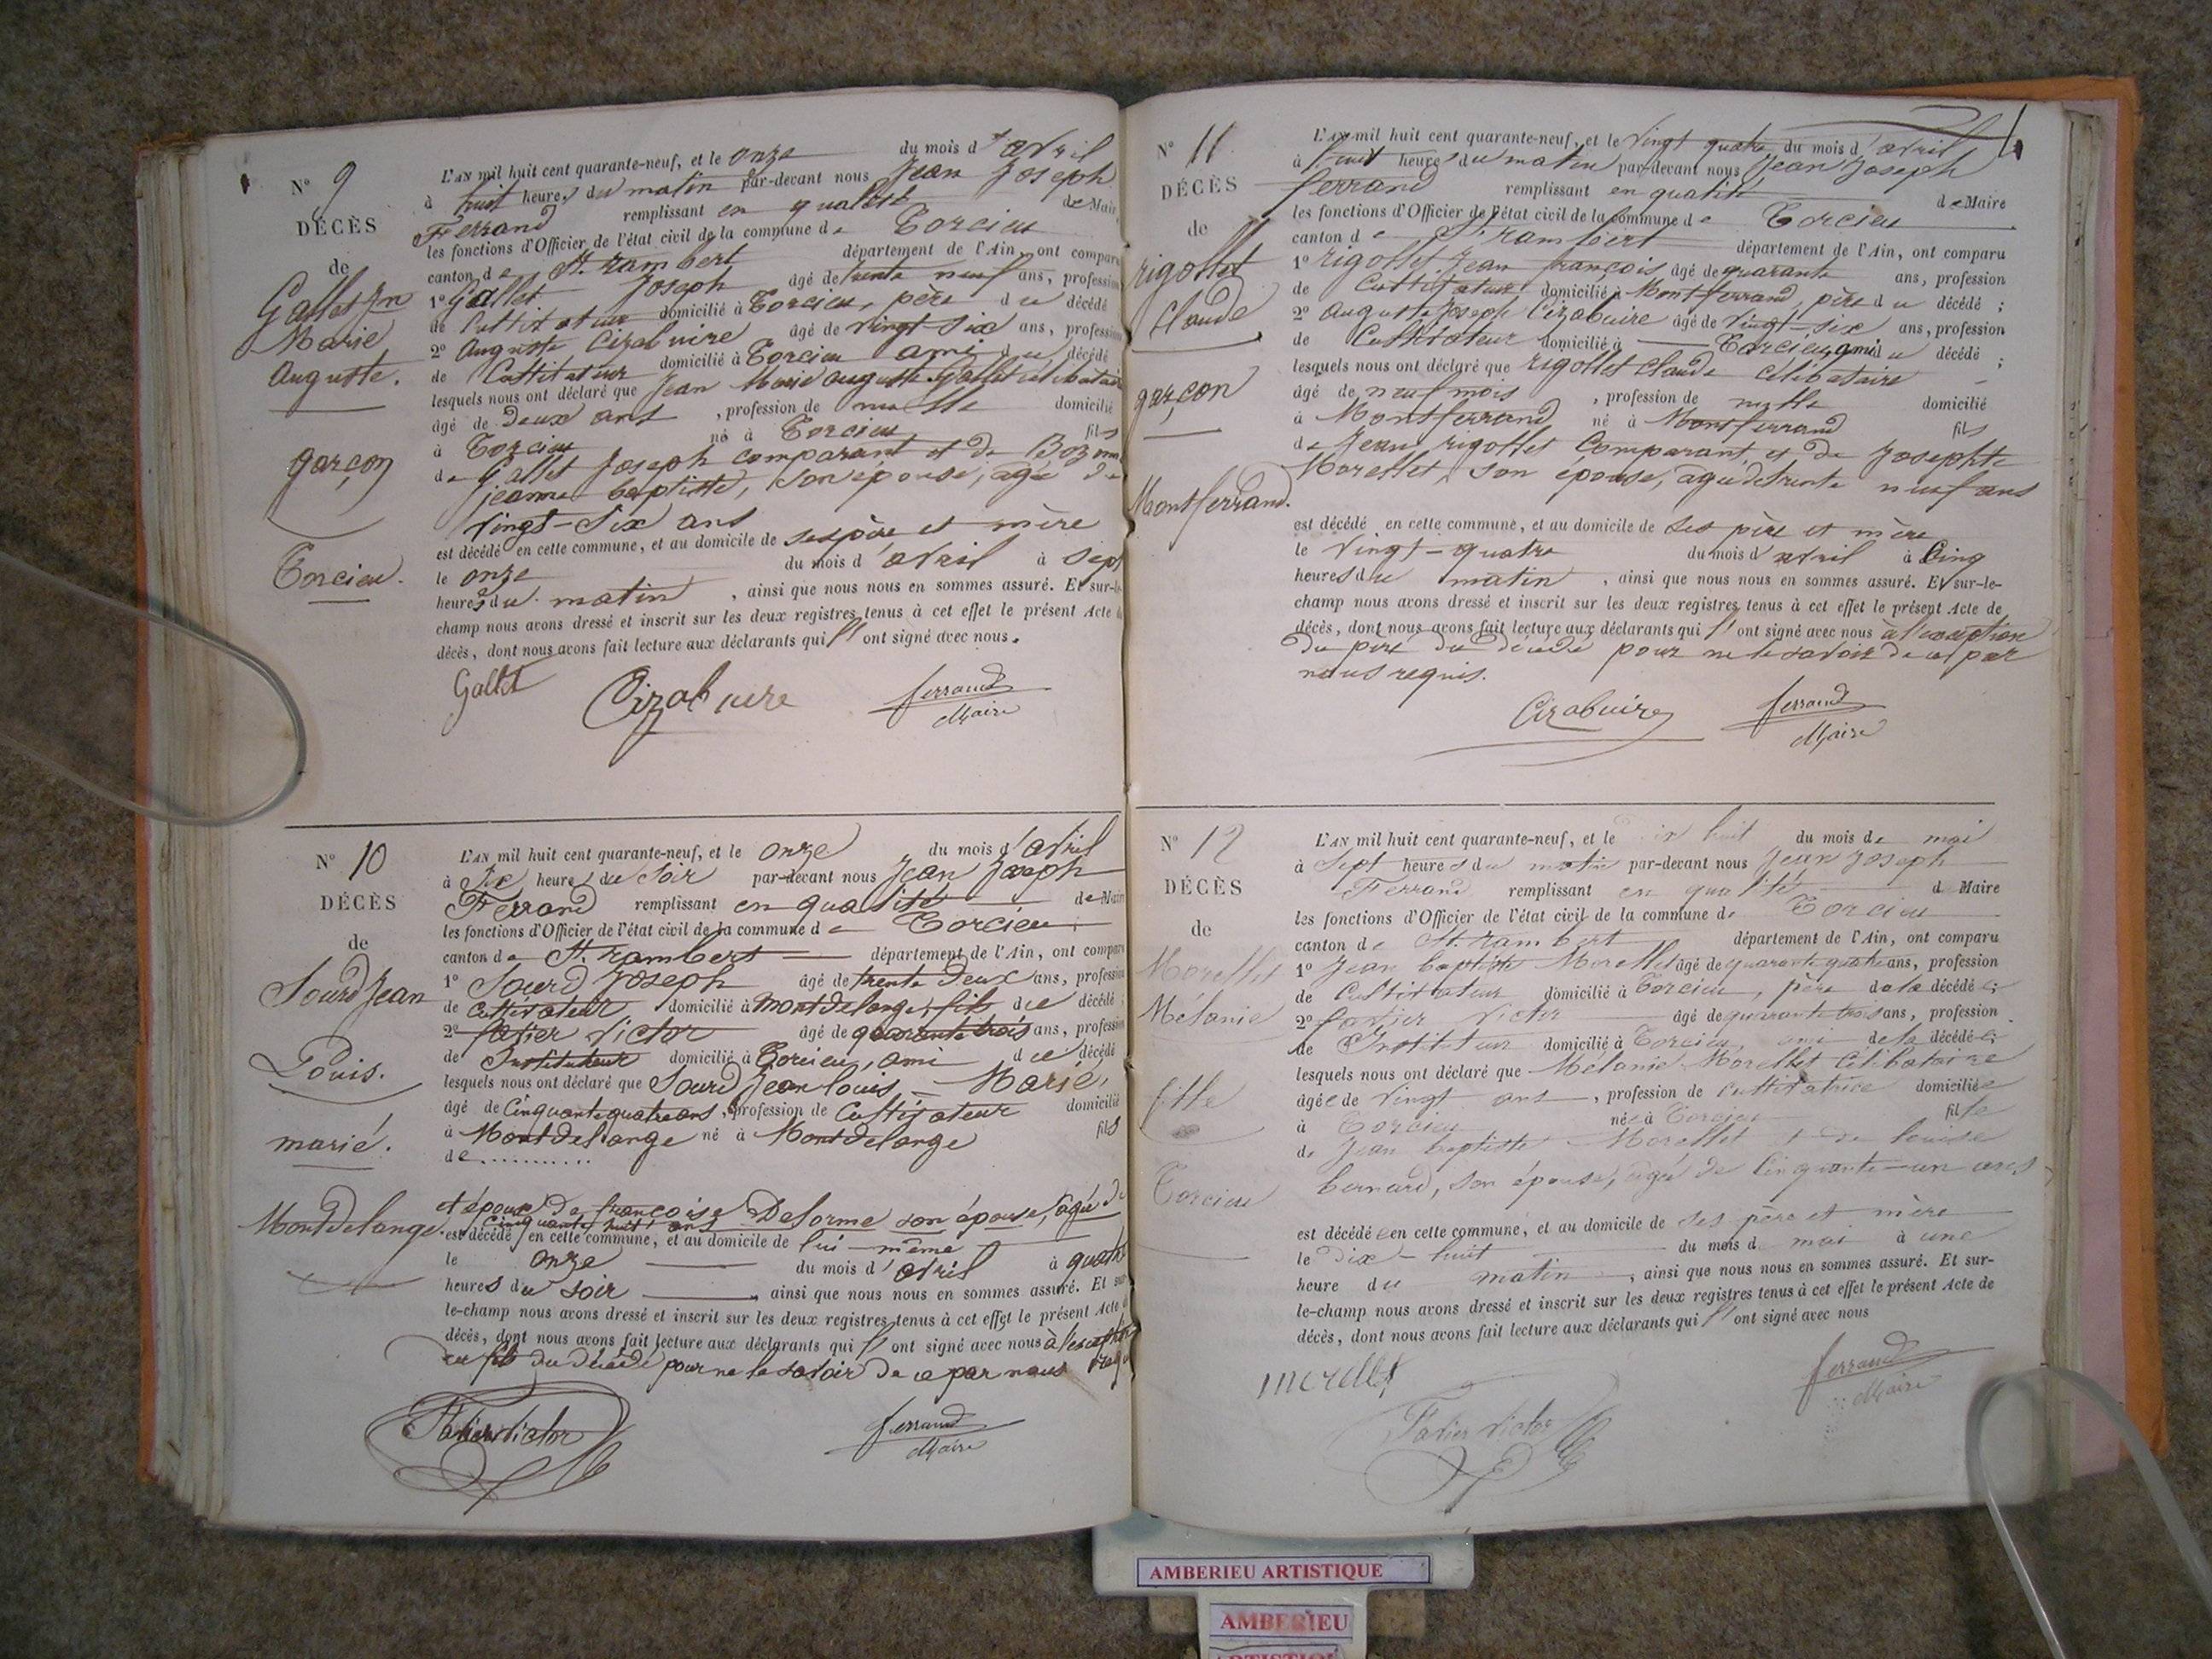 N° 9
DÉCÈS
de
Gallet Jn
Marie
Auguste.
garçon
Torcieu.
L'AN mil huit cent quarante-neuf, et le onze du mois d'avril
à huit heures du matin par-devant nous Jean Joseph
Ferrand remplissant en qualité de Maire
les fonctions d'Officier de l'état civil de la commune de Torcieu
canton de St. rambert département de l'Ain, ont comparu
1° Gallet Joseph âgé de trente neuf ans, profession
de Cultivateur domicilié à Torcieu, père du décédé
2° Auguste Cizabuire âgé de vingt-six ans, profession
de Cultivateur domicilié à Torcieu ami du décédé
lesquels nous ont déclaré que Jean Marie auguste Gallet célibataire
âgé de deux ans, profession de nulle domicilié
à Torcieu né à Torcieu fils
de Gallet Joseph comparant et de
jeanne baptiste, son épouse, agée de
vingt-six ans
est décédé en cette commune, et au domicile de ses père et mère
le onze du mois d'avril à sept
heures du matin, ainsi que nous nous en sommes assuré. Et sur-le-
champ nous avons dressé et inscrit sur les deux registres tenus à cet effet le présent Acte de
décès, dont nous avons fait lecture aux déclarants qui ont signé avec nous.
Gallet Cizabuire ferrand
Maire
N° 10
DÉCÈS
de
Sourd Jean
Louis.
marié.
Montdelange.
L'AN mil huit cent quarante-neuf, et le onze du mois d'avril
à six heures du soir par-devant nous Jean Joseph
Ferrand remplissant en qualité de Maire
les fonctions d'Officier de l'état civil de la commune de Torcieu
canton de St. rambert département de l'Ain, ont comparu
1° Sourd Joseph âgé de trente deux ans, profession
de cultivateur domicilié à Montdelange, fils du décédé;
2° fatier victor âgé de quarante trois ans, profession
de Instituteur domicilié à Torcieu, ami du décédé
lesquels nous ont déclaré que Sourd Jean louis – Marié,
âgé de Cinquante quatre ans, profession de Cultivateur domicilié
à Montdelange né à Montdelange fils
de............
et époux de françoise Delorme son épouse, agée de
Cinquante huit ans
est décédé en cette commune, et au domicile de lui-même
le onze du mois d'avril à quatre
heures du soir, ainsi que nous nous en sommes assuré. Et sur-
le-champ nous avons dressé et inscrit sur les deux registres tenus à cet effet le présent Acte de
décès, dont nous avons fait lecture aux déclarants qui ont signé avec nous à l'exception
du fils du décédé pour ne le savoir de ce par nous requis
Fatier Victor ferrand
Maire
N° 11
DÉCÈS
de
rigollet
Claude
garçon
Montferrand.
L'AN mil huit cent quarante-neuf, et le vingt quatre du mois d'avril
à huit heures du matin par-devant nous Jean Joseph
ferrand remplissant en qualité de Maire
les fonctions d'Officier de l'état civil de la commune de Torcieu
canton de St rambert département de l'Ain, ont comparu
1° rigollet Jean françois âgé de quarante ans, profession
de Cultivateur domicilié à Montferrand, père du décédé;
2° auguste Joseph Cizabuire âgé de vingt-six ans, profession
de Cultivateur domicilié à Torcieu, ami du décédé;
lesquels nous ont déclaré que rigollet claude célibataire
âgé de neuf mois, profession de nulle domicilié
à Montferrand né à Montferrand fils
de Jean rigollet Comparant et de Josephte
Morellet, son épouse, agée de trente neuf ans
est décédé en cette commune, et au domicile de ses père et mère
le vingt-quatre du mois d'avril à Cinq
heures du matin, ainsi que nous nous en sommes assuré. Et sur-le-
champ nous avons dressé et inscrit sur les deux registres tenus à cet effet le présent Acte de
décès, dont nous avons fait lecture aux déclarants qui ont signé avec nous à l'exception
du père du décédé pour ne le savoir de ce par
nous requis.
Cizabuire ferrand
Maire
N° 12
DÉCÈS
de
Morellet
Mélanie
fille
Torcieu
L'AN mil huit cent quarante-neuf, et le dix huit du mois de mai
à sept heures du matin par-devant nous Jean Joseph
Ferrand remplissant en qualité de Maire
les fonctions d'Officier de l'état civil de la commune de Torcieu
canton de St. rambert département de l'Ain, ont comparu
1° Jean baptiste Morellet âgé de quarante quatre ans, profession
de Cultivateur domicilié à Torcieu, père de la décédée;
2° fatier victor âgé de quarante trois ans, profession
de Instituteur domicilié à Torcieu, ami de la décédée;
lesquels nous ont déclaré que Mélanie Morellet Célibataire
âgée de vingt ans, profession de Cultivatrice domiciliée
à Torcieu née à Torcieu fille
de Jean baptiste Morellet et de louise
bernard, son épouse, agée de Cinquante-un ans
est décédée en cette commune, et au domicile de ses père et mère
le dix-huit du mois de mai à une
heure du matin, ainsi que nous nous en sommes assuré. Et sur-
le-champ nous avons dressé et inscrit sur les deux registres tenus à cet effet le présent Acte de
décès, dont nous avons fait lecture aux déclarants qui ont signé avec nous
morellet ferrand
Maire
Fatier Victor
AMBERIEU ARTISTIQUE
AMBERIEU
ARTISTIQUE